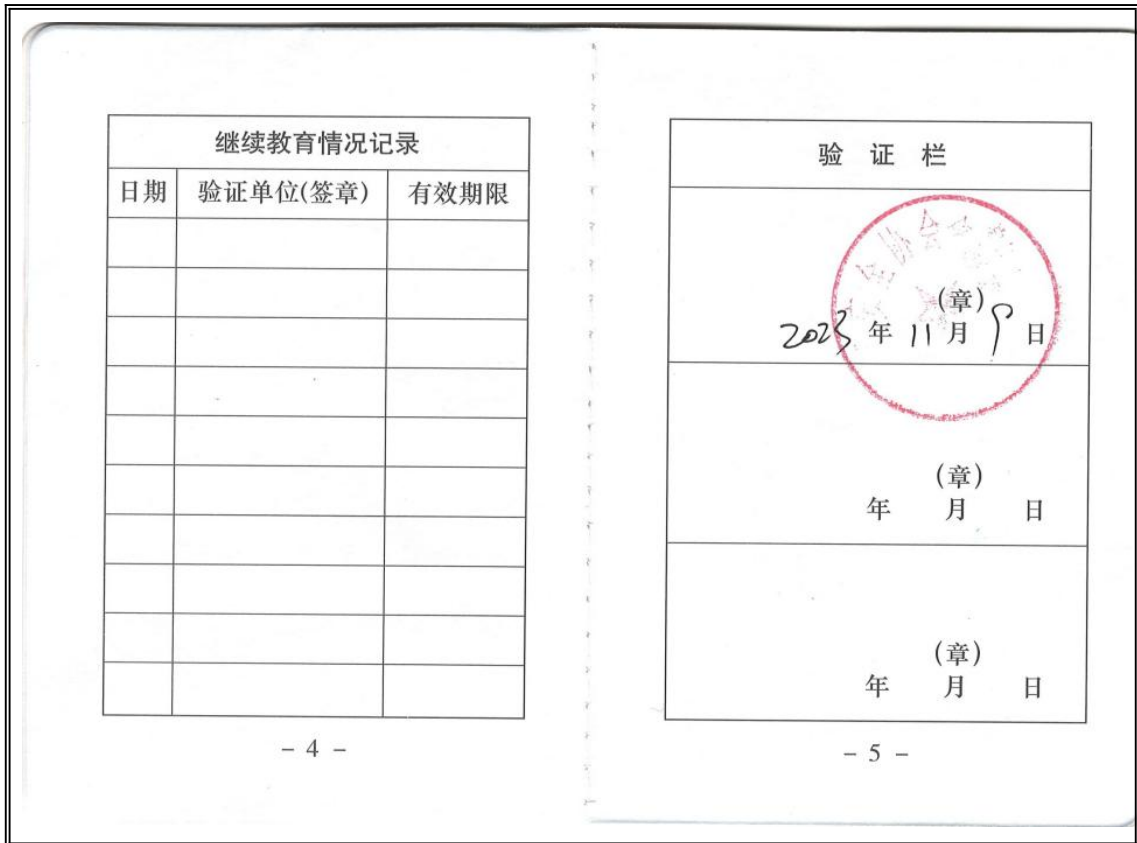 继续教育情况记录
日期 验证单位(签章) 有效期限
- 4 -
验 证 栏
(章)
2023 年 11 月 9 日
(章)
年 月 日
(章)
年 月 日
- 5 -